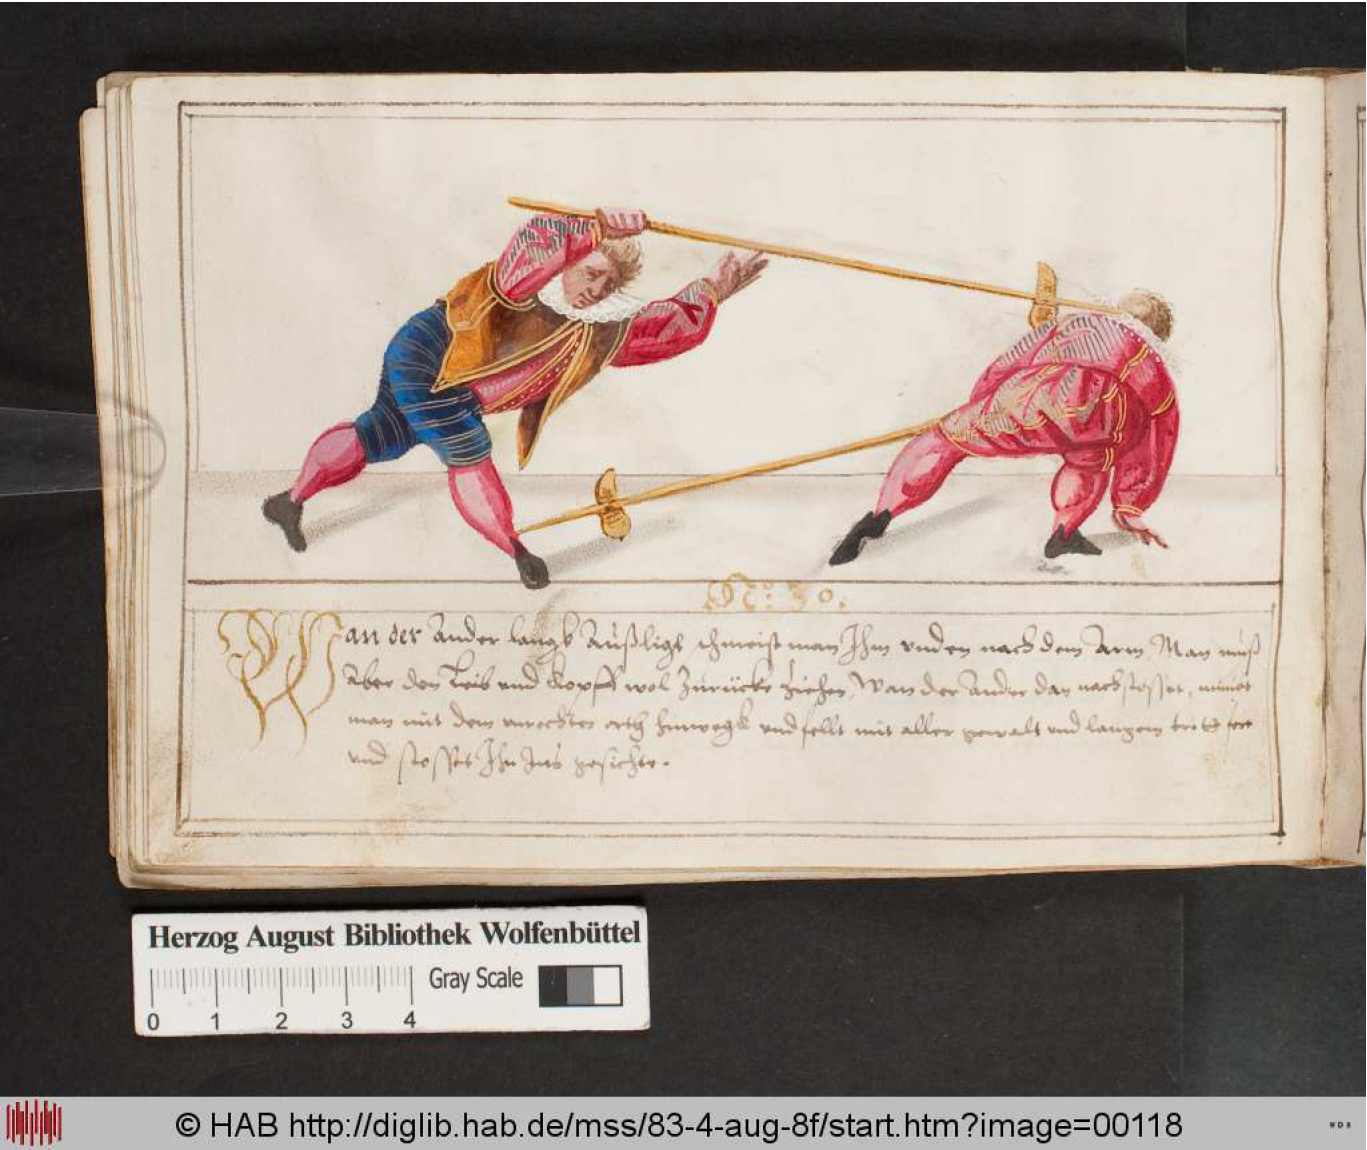 No: 30.
Wan der Ander langk Außligt, schmeist man Ihm vnden nach dem Arm, Man muß
Aber den Leib vnd Kopff wol Zurücke ziehen, Wan der Ander dan nachstosset, nimbt
man mit dem vnrechten orth hinwegk vnd fellt mit aller gewalt vnd langem tritt
vnd stosset Ihn Ins gesichte.
Herzog August Bibliothek Wolfenbüttel
Gray Scale
0 1 2 3 4
© HAB http://diglib.hab.de/mss/83-4-aug-8f/start.htm?image=00118